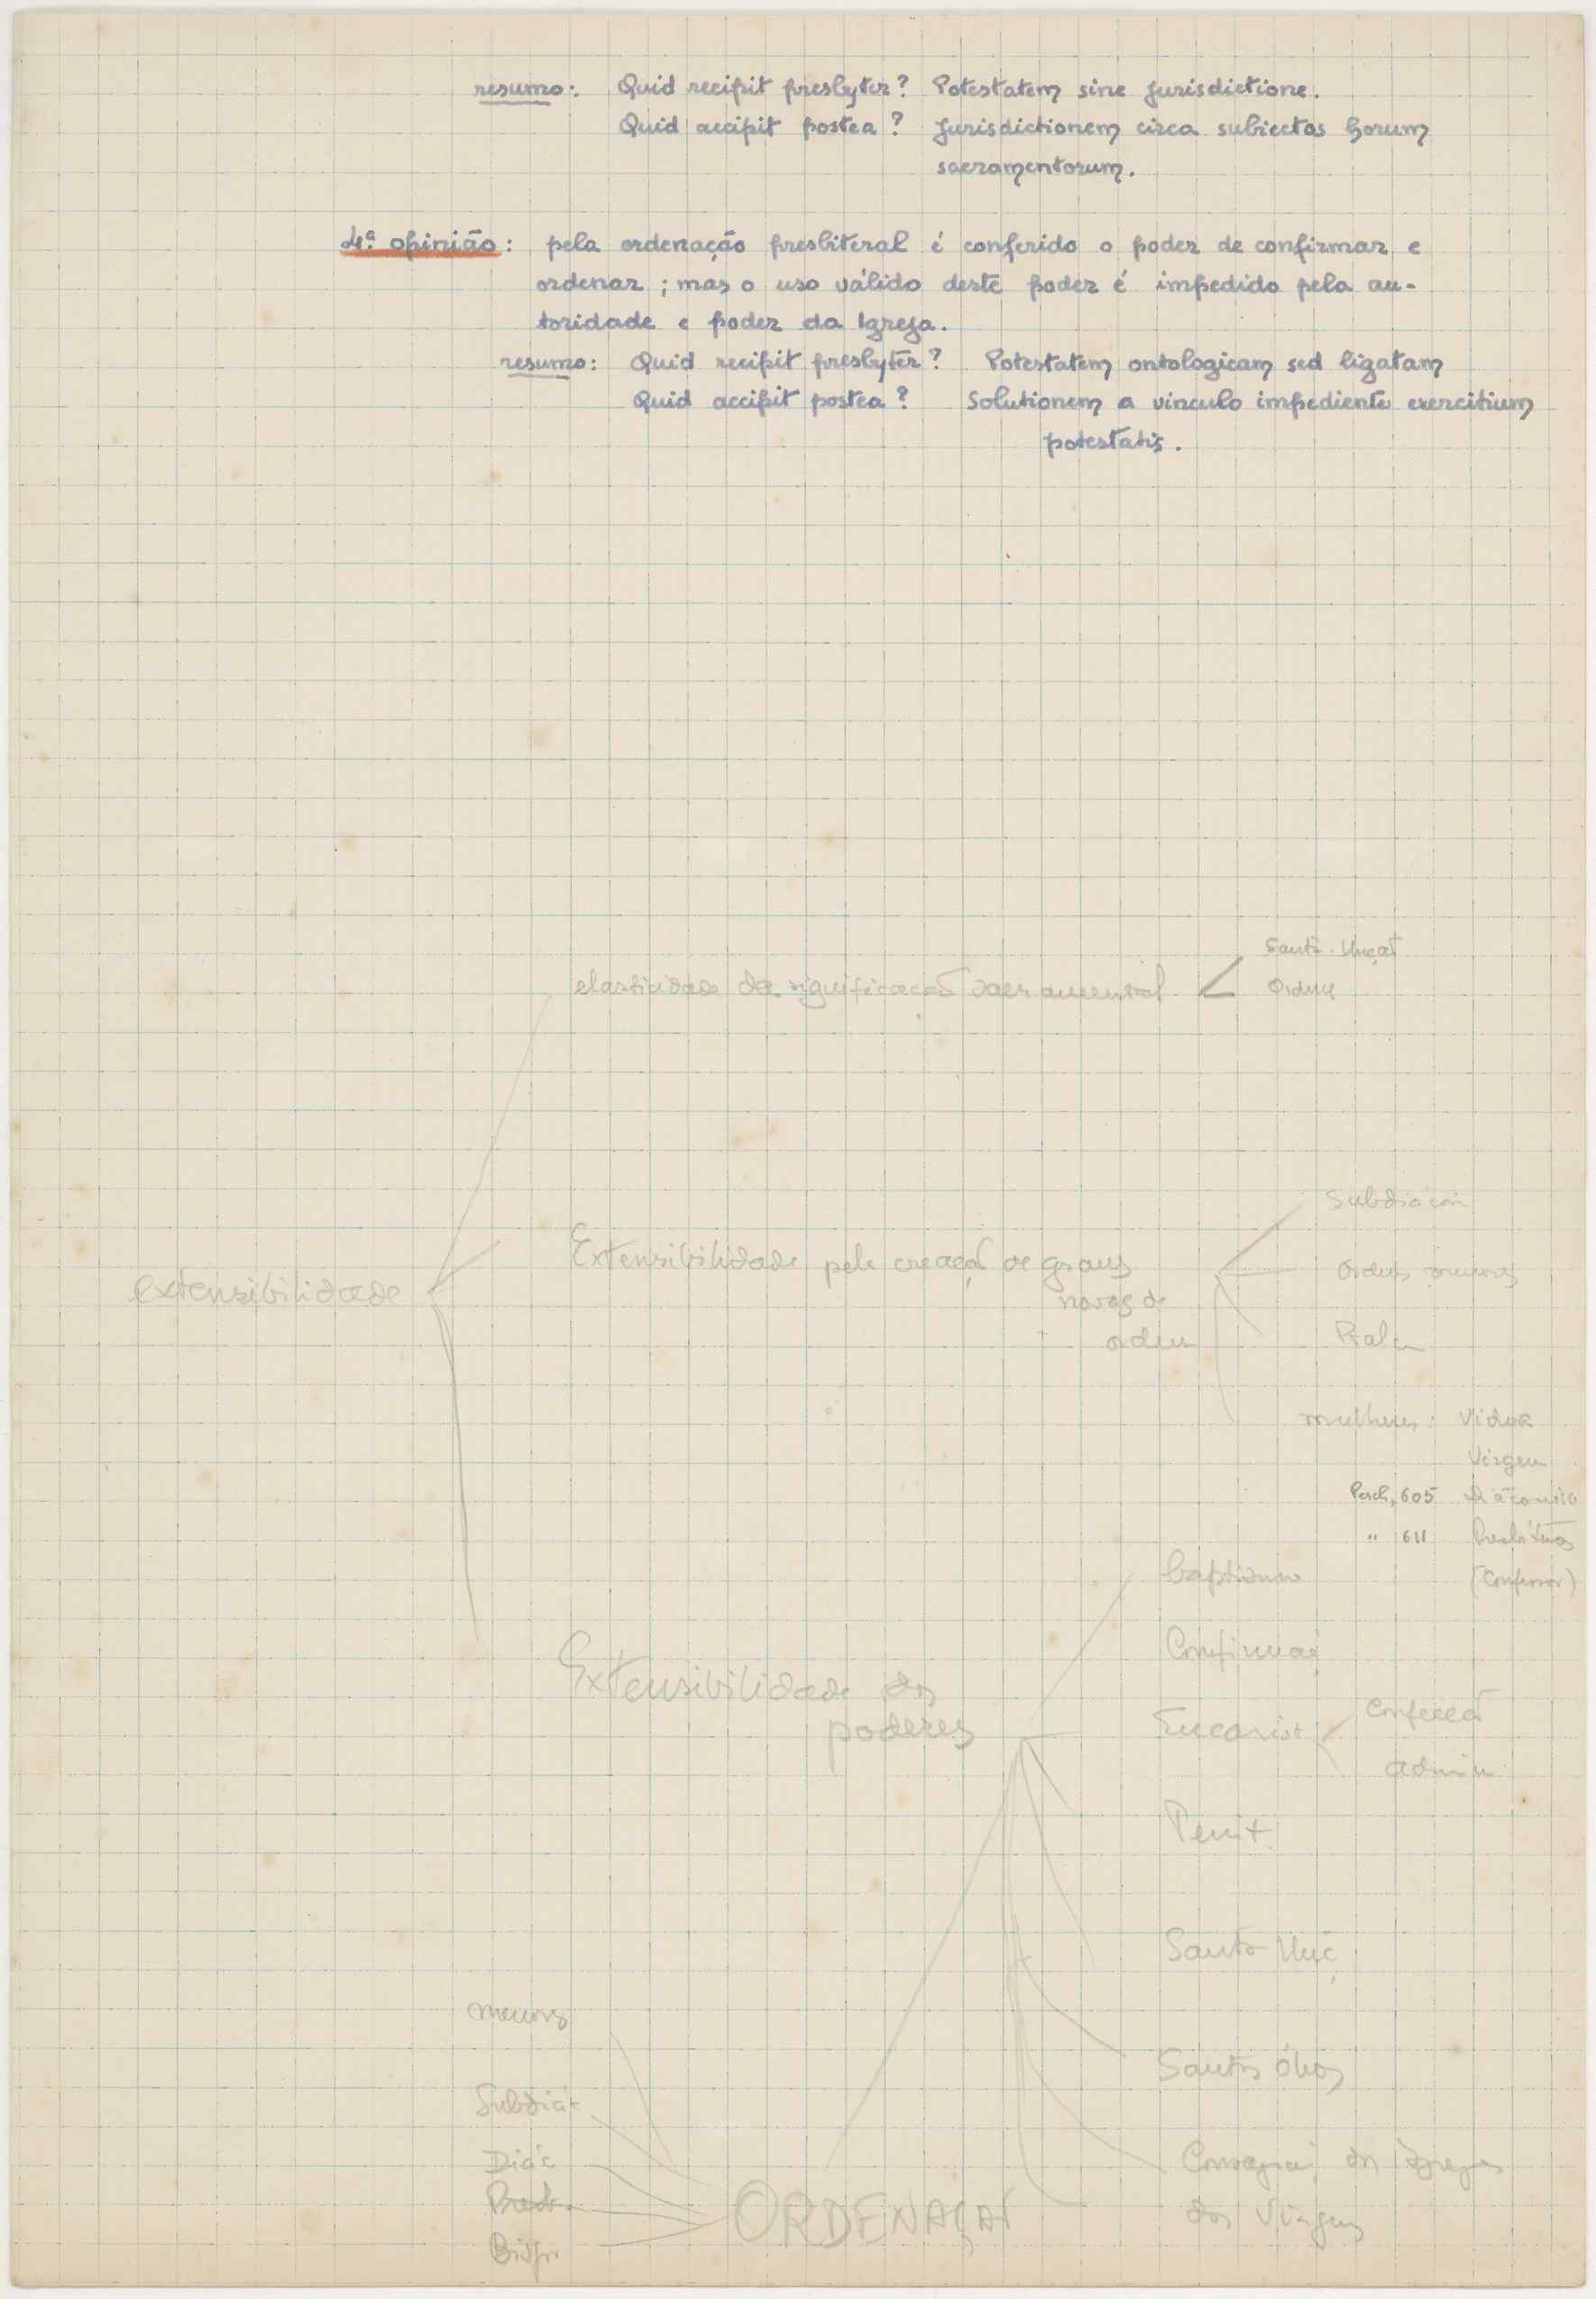 resumo: Quid recipit presbyter? Potestatem sine jurisdictione.
Quid accipit postea? Jurisdictionem circa subiectos horum
sacramentorum.
4ª opinião: pela ordenação presbiteral é conferido o poder de confirmar e
ordenar ; mas o uso válido deste poder é impedido pela au-
toridade e poder da Igreja.
resumo: Quid recipit presbyter? Potestatem ontologicam sed ligatam
Quid accipit postea? Solutionem a vinculo impediente exercitium
potestatis.
Santa Unçaõ
elasticidade da significação sacramental
Ordem
Subdiacon
extensibilidade
Extensibilidade pela creaçaõ de graus
novos de
ordem
Ordens menores
mulheres: Viduae
Virgem
Pesch, 605
" 611
(Confessor)
baptismo
Confirmaç
Extensibilidade dos
poderes
Eucarist
Confecçaõ
admin
Penit
Santa Unç
menores
Santos óleos
Subdiác
Diác
Presb.
Bispo
ORDENAÇAÕ
Consagraç dos Igrejas
das Virgens